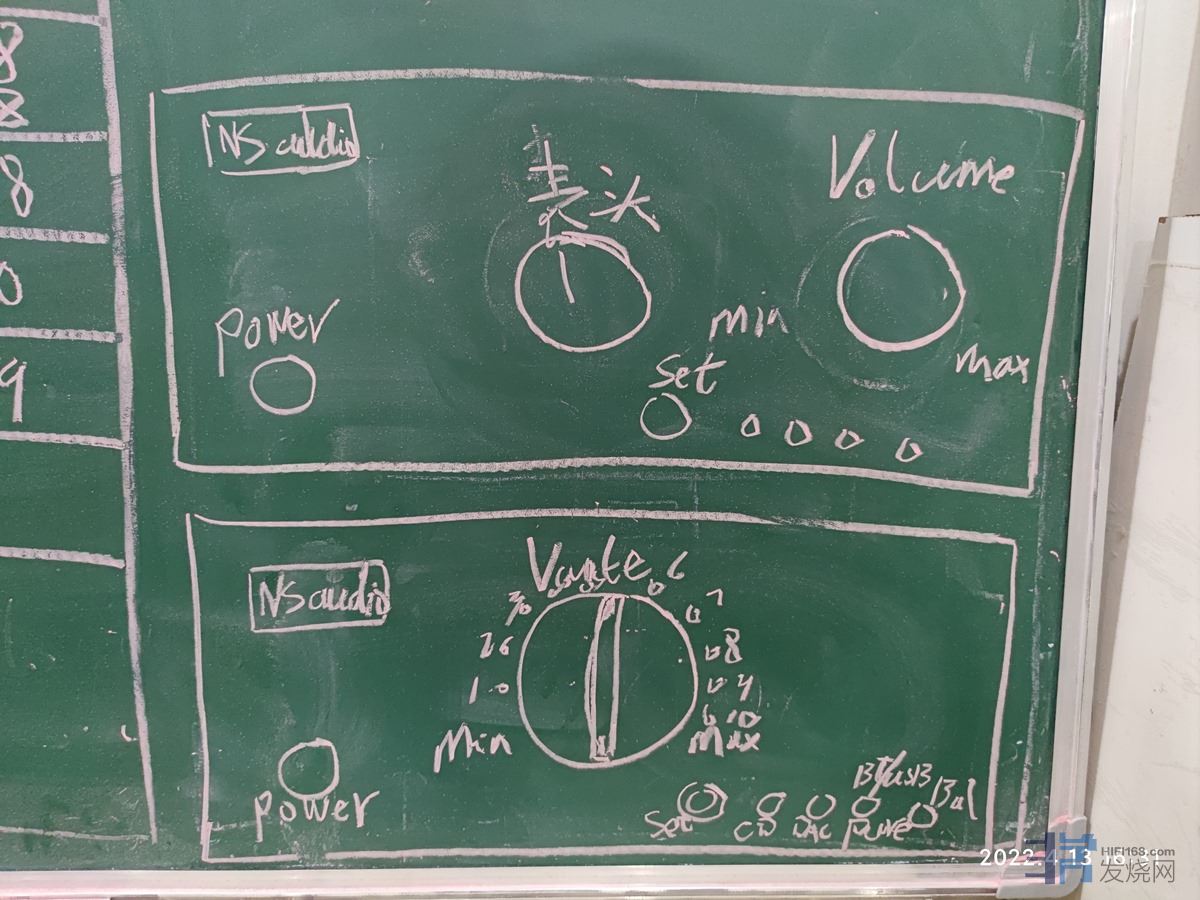 8
8
8
0
9
NS audio
表头
Volume
power
min
max
Set
NS audio
6
7
2
8
1
9
10
Min
max
power
Set
CD
DAC
Pure
BT/USB
Bal
2022.4.13 16:31
HIFI168.com
发烧网